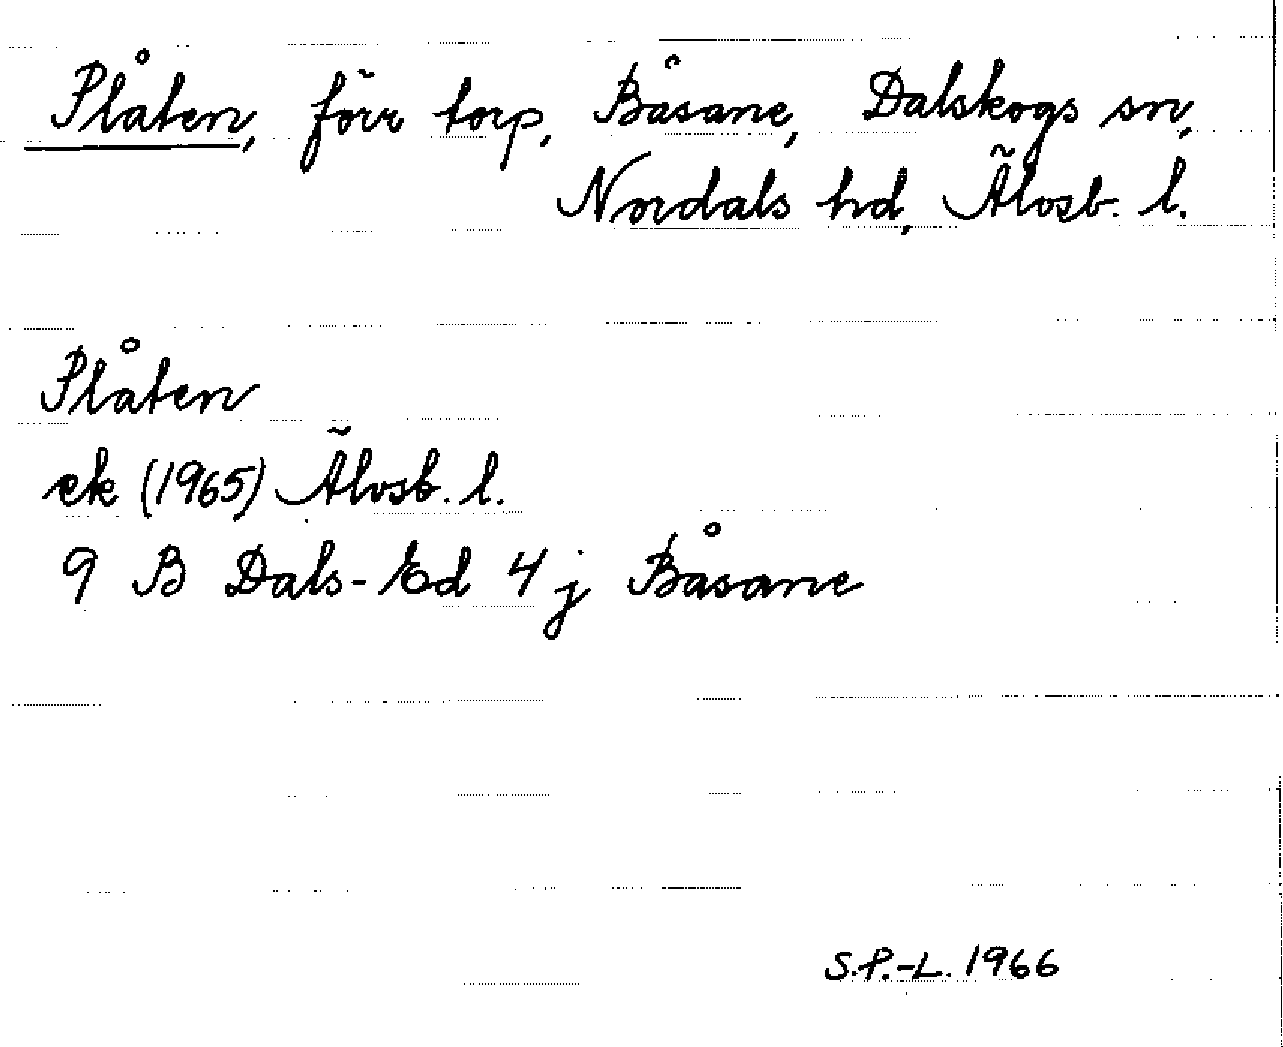 Plåten, förr torp, Båsane, Dalskogs sn,
Nordals hd, Älvsb. l.
Plåten
ek (1965) Älvsb. l.
9 B Dals-Ed 4 j Båsane
S.P.-L. 1966